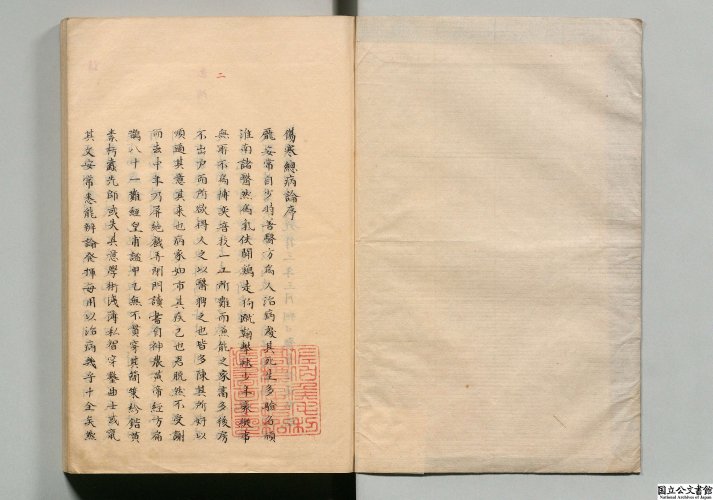 傷寒總病論序
龐安常自少時善醫方為人治病處其死生多驗名傾
淮南諸醫然為氣任俠鬬鷄走狗蹴鞠擊毬少年豪縱事
無所不為博奕音技一工所難而兼能之家富多後房
不出戶而所欲得人之以醫聘之也皆多陳其所好以
順適其意其來也病家如市其疾已也君脫然不受謝
而去中年乃屏絕戲弄閉門讀書自神農黃帝經方扁
鵲八十一難經皇甫謐甲乙無不貫穿其簡策紛錯黃
素朽蠹先師或失其意學術淺薄私智穿鑿曲士或竄
其文安常悉能辨論發揮每用以治病幾乎十全矣然
二
国立公文書館
National Archives of Japan